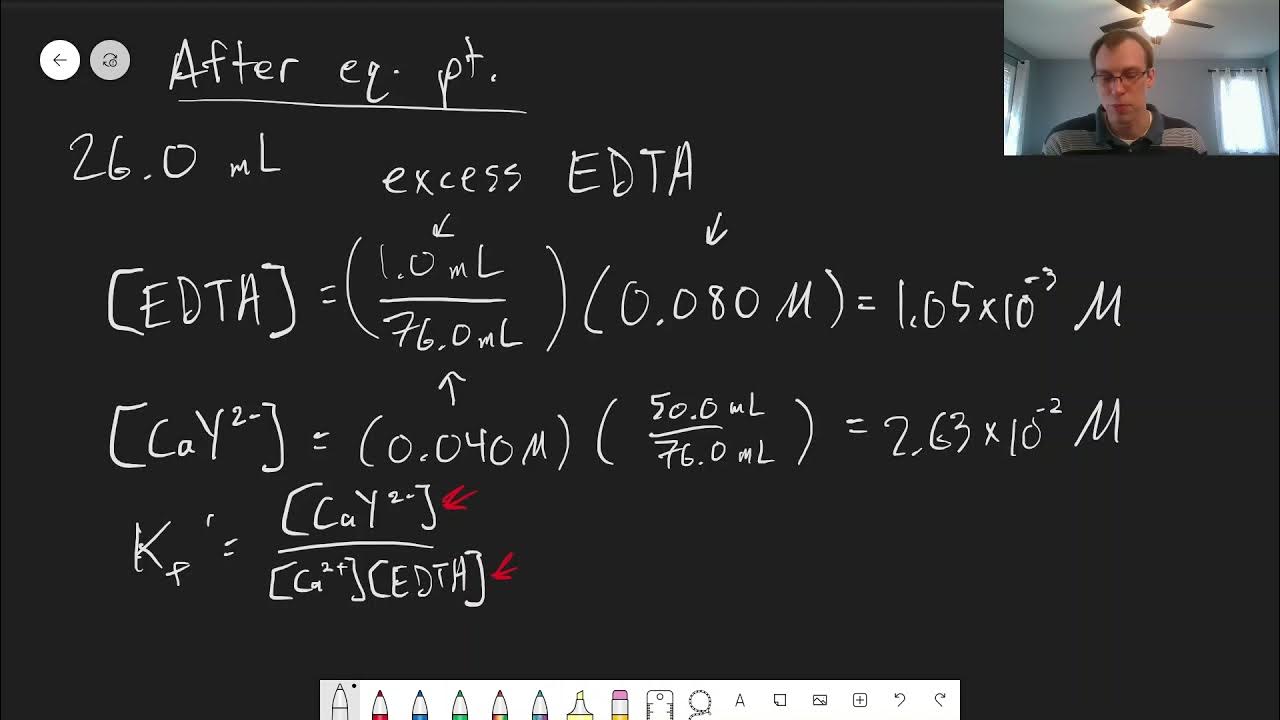 After eq. pt.
26.0 mL
excess EDTA
[EDTA] = (1.0 mL / 76.0 mL) (0.080 M) = 1.05×10⁻³ M
[CaY²⁻] = (0.040 M) (50.0 mL / 76.0 mL) = 2.63×10⁻² M
K_f' = [CaY²⁻] / [Ca²⁺][EDTA]
A